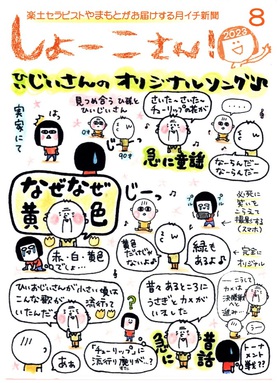 楽土セラピストやまもとがお届けする月イチ新聞
しょーこさん!
2023
8
ひぃじいさんのオリジナルソング♪
実家にて
見つめ合うひ孫と
ひぃじいさん
じーっ
90才
さいた〜さいた〜
チューリップの花が
急に童謡
なーらんだー
なーらんだー
なぜなぜ
黄色
赤・白・黄色
でしょ…
じーっ
黄色
だけじゃ
ないよぉ
緑も
あるよぉ
必死に
笑いを
こらえて
撮影する
(スマホ)
完全に
オリジナル
ひいおじいさんが小さい頃は
こんな歌が流行って
いたんだ
あぁ
「チューリップ」に
流行り廃りが…?
昔々あるところに
うさぎとカメが
いました
急に
昔話
…こうして
カメは
決勝戦へ
進み…
トーナ
メント
戦??